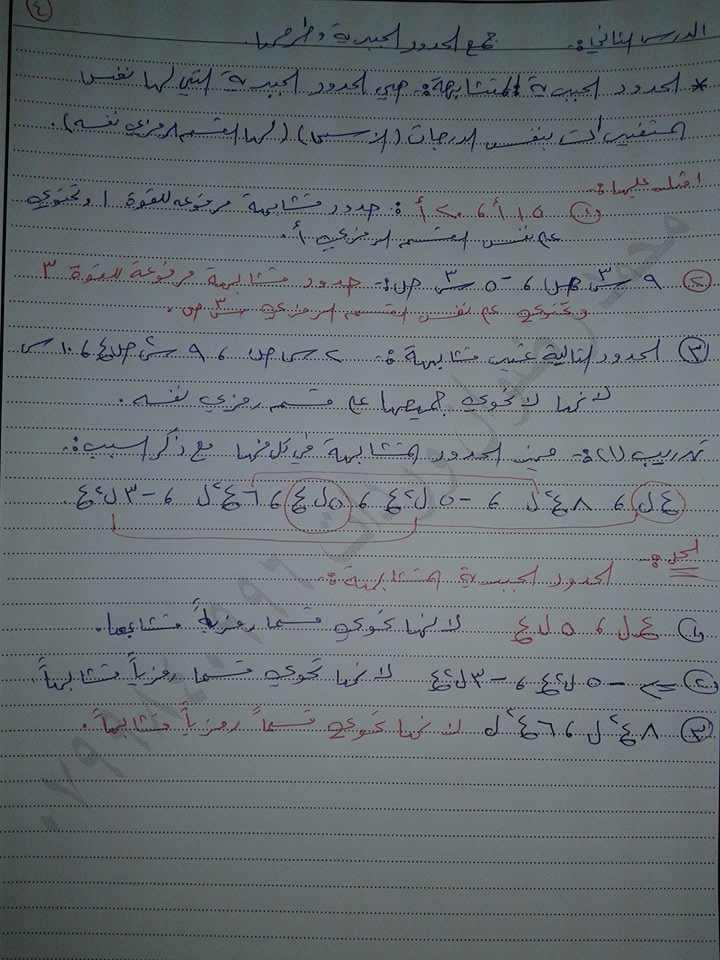 ٤
الدرس الثاني: جمع الحدود الجبرية وطرحها.
* الحدود الجبرية المتشابهة: هي الحدود الجبرية التي لها نفس
المتغيرات بنفس الدرجات (الأسس) (لها القسم الرمزي نفسه).
أمثلة عليها:
① ١٥أ ، ٢٠أ : حدود متشابهة مرفوعة للقوة ١ وتحتوي
على نفس القسم الرمزي أ.
② ٩س٣ص ، -٥س٣ص : حدود متشابهة مرفوعة للقوة ٣
وتحتوي على نفس القسم الرمزي س٣ص.
③ الحدود التالية غير متشابهة : ٢س ص ، ٩س ص ع ، ١٠س
لانها لا تحوي جميعها على قسم رمزي نفسه.
تدريب (٢): ميز الحدود المتشابهة في كل منها مع ذكر السبب:
ع ل ، ٨ع٢ل ، -٥ل٢ع ، ٥ل ع ، ٦ع٢ل ، -٣ل٢ع
الحل:
الحدود الجبرية المتشابهة:
① ع ل ، ٥ل ع لانها تحوي قسما رمزياً متشابها.
② -٥ل٢ع ، -٣ل٢ع لانها تحوي قسما رمزياً متشابهاً
③ ٨ع٢ل ، ٦ع٢ل لانها تحوي قسماً رمزياً متشابهاً.
محمد رضوان وردات